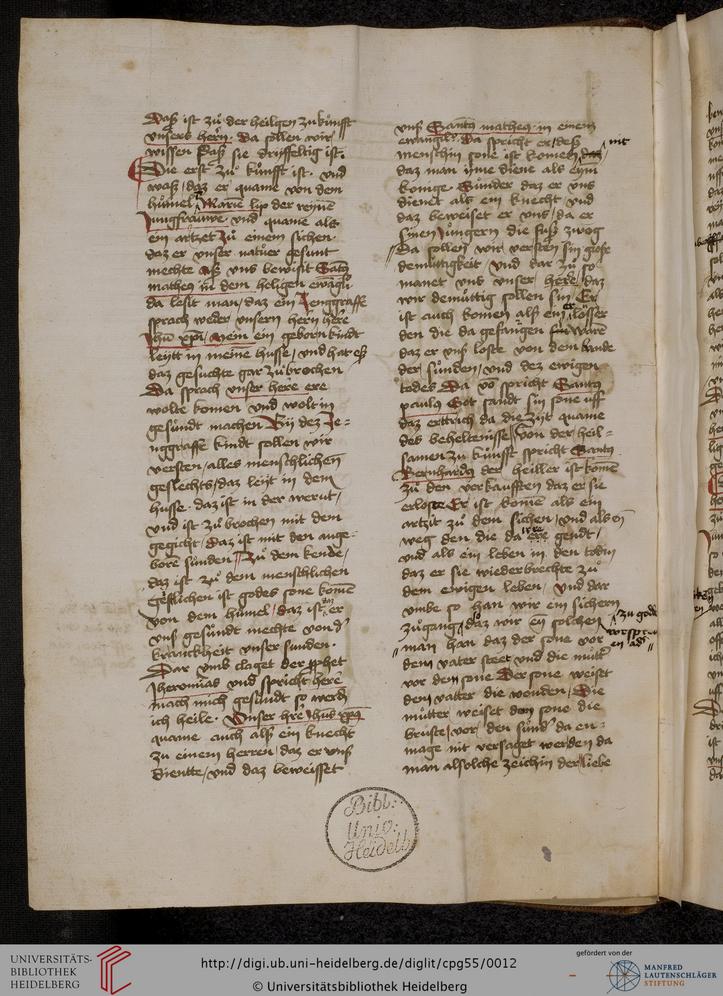 Daß ist zů der heilgen zukůnfft
vnsers hern. Da sollen wir
wissen Daß sie dryffeltig ist.
Die erst zů kůnfft ist. vnd
waß / daz er quame von dem
hůmel Marien lip der reynen
Jungfrauwe. vnd quame als
ein artzet zů einem sichen.
daz er vnser natuer gesunt
mechte Alß vns bewisit
matheus in dem heligen ewangeliu
da lesit man / daz ein Jenggraffe
sprach weder vnsern hern here
ihm xpm / mein ein geborn kindt
leytt in meine husse / vnd hat eß
daz gesuchte gar zubrochen
Da sprach vnser here ere
wolte komen vnd wolt in
gesůndt machen By dez Je=
nggraffe kindt sollen wir
versten / alles menschlichen
geslechts / daz leyt in dem
husse. daz ist in der wernt /
vnd ist zů brochen mit dem
gegicht / daz ist mit den ange=
born sůnden // Zů dem kende /
daz ist zů dem menschlichen
geslichen ist godes sone komen
von dem hůmel / daz ist er
vns gesundt mechte von der
kranckheit vnser sunden.
Dar vmb claget der pphet
Jheremias vnd spricht here
mach mich gesůndt so werd
ich heile. Vnser hre ihus xpus
quame auch alß ein knecht
zu einem herren / daz er vnß
dientte / vnd daz beweisset
vnß Santus matheus in einem
ewangelio. Da spricht er / deß
menschin sone ist komen nit
daz man yme diene als eym
konige. Sunder daz er vns
dienet als ein knecht vnd
daz beweiset er vns / da er
synen Jungern die fusß zwog
Da sollen wir versten sin groß
demuttigkeit / vnd dar zů so
manet vns vnser here / daz
wir demůttig sollen sin Er
ist auch komen alß ein er lösser
den die da gefangen waren
daz er vnß loste von dem bande
der sůnden / vnd dez ewigen
todes Da von spricht Santus
paulus Got sandt sin sone uff
daz ertrich da die zijt quame
des beheltenisse / Von der heil=
samen zu kůnfft spricht Santus
Bernhardus der heiller ist komen
zů den verkaufften daz er sie
erloste Er ist komen als ein
artzit zů dem sichen / vnd als ein
weg den die da irre gendt /
vnd als ein leben in den todin
daz er sie wiederbrechte zů
dem ewigen leben / vnd dar
vmbe so han wir ein sichern
zůgang zu gode / daz wir en solchen vorsprechen
man han daz der sone vor
dem vater steet vnd die mutter
vor dem sone Der sone weiset
dem vatter die wonden / Die
mutter weiset dem sone die
brůste / vor den sůnder da en=
mage nit versagtt werden da
man alsolche zeichin der liebe
Bibl:
Univ:
Heidelb
UNIVERSITÄTS-
BIBLIOTHEK
HEIDELBERG
http://digi.ub.uni-heidelberg.de/diglit/cpg55/0012
© Universitätsbibliothek Heidelberg
gefördert von der
MANFRED
LAUTENSCHLÄGER
STIFTUNG